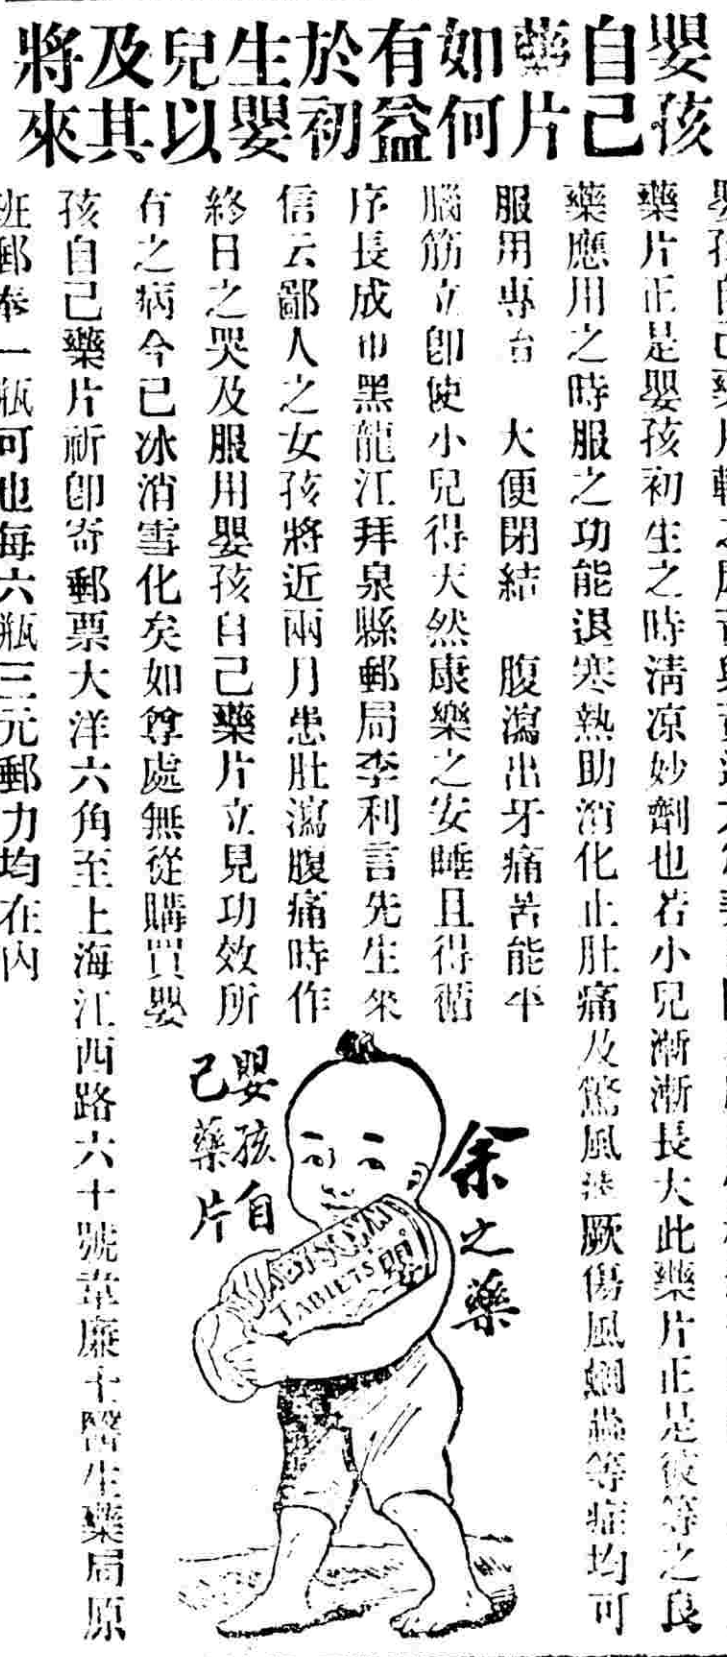 嬰孩
自己
藥片
如何
有益
於初
生嬰
兒以
及其
將來
藥片正是嬰孩初生之時清凉妙劑也若小兒漸漸長大此藥片正是彼等之良
藥應用之時服之功能退寒熱助消化止肚痛及驚風 厥傷風蟲等症均可
服用專治 大便閉結 腹瀉出牙痛苦能平
腦筋立卽使小兒得天然康樂之安睡且得循
序長成也黑龍江拜泉縣郵局李利言先生來
信云鄙人之女孩將近兩月患肚瀉腹痛時作
終日之哭及服用嬰孩自己藥片立見功效所
有之病今已冰消雪化矣如尊處無從購買嬰
孩自己藥片祈卽寄郵票大洋六角至上海江西路六十號韋廉士醫生藥局原
班郵奉一瓶可也每六瓶三元郵力均在內
余之藥
嬰孩自
己藥片
TABLETS